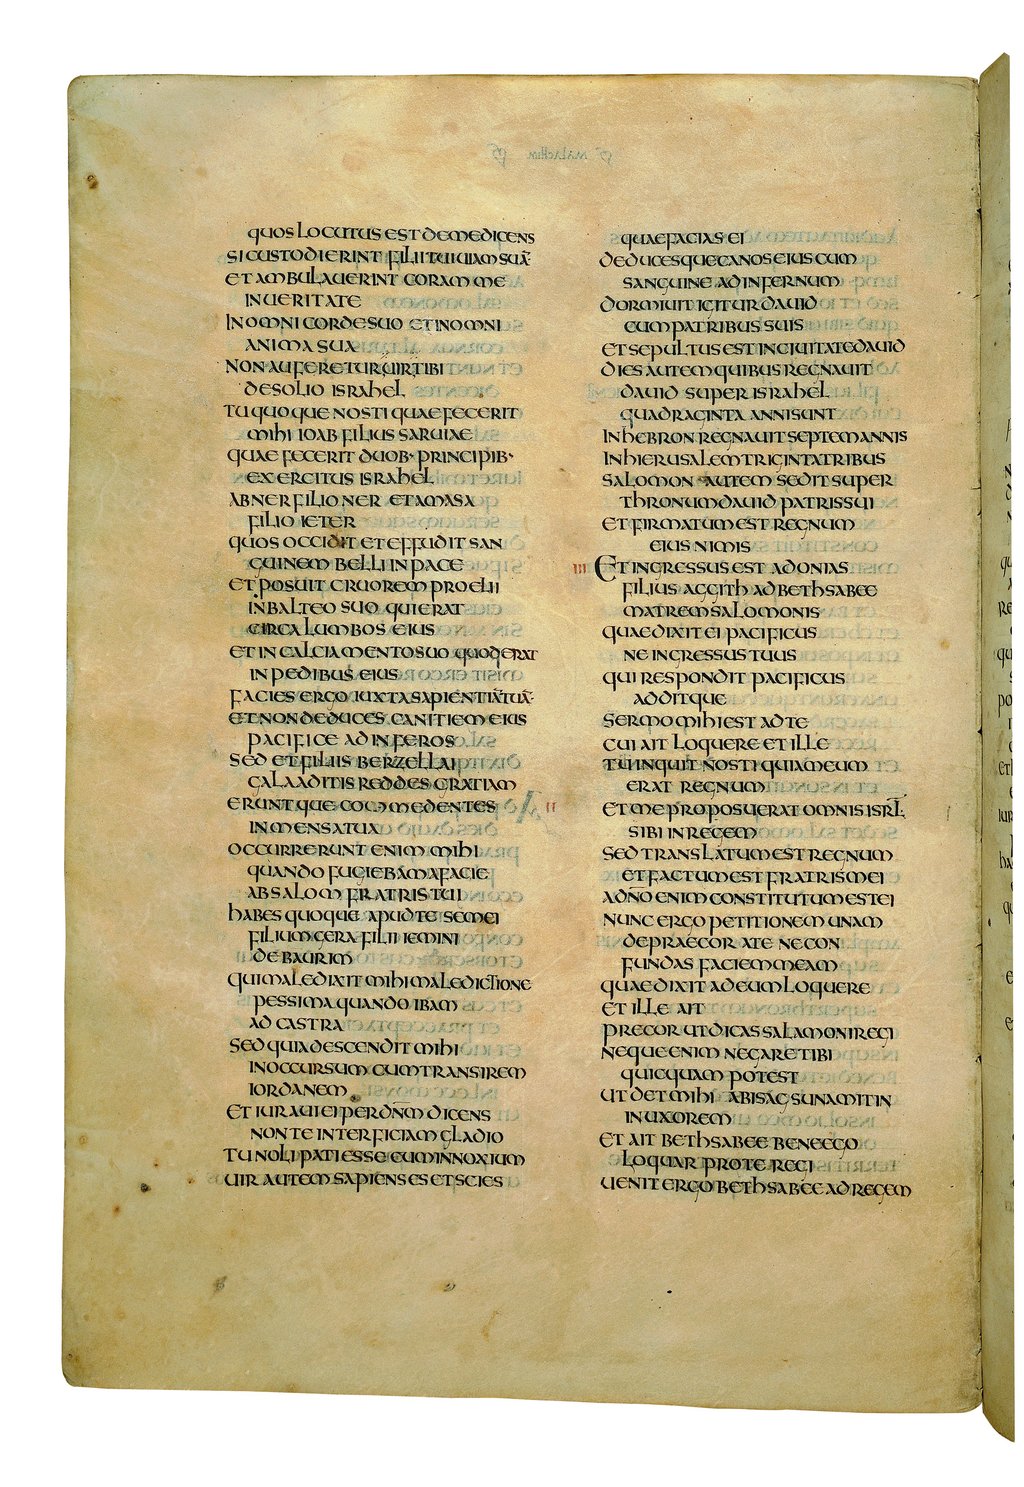 quos locutus est de me dicens
si custodierint filii tui uiam suā
et ambulauerint coram me
in ueritate
in omni corde suo et in omni
anima sua
non auferetur uir tibi
de solio israhel
tu quoque nosti quae fecerit
mihi ioab filius saruiae
quae fecerit duob· principib·
exercitus israhel
abner filio ner et amasa
filio ieter
quos occidit et effudit san
guinem belli in pace
et posuit cruorem proelii
in balteo suo qui erat
circa lumbos eius
et in calciamento suo quod erat
in pedibus eius
facies ergo iuxta sapientiā tuā·
et non deduces canitiem eius
pacifice ad inferos
sed et filiis berzellai
galaaditis reddes gratiam
eruntque comedentes
in mensa tua
occurrerunt enim mihi
quando fugiebam a facie
absalom fratris tui
habes quoque apud te semei
filium gera filii iemini
de baurim
qui maledixit mihi maledictione
pessima quando ibam
ad castra
sed quia descendit mihi
in occursum cum transirem
iordanem
et iuraui ei per dnm̄ dicens
non te interficiam gladio
tu noli pati esse eum innoxium
uir autem sapiens es et scies
quae facias ei
deducesque canos eius cum
sanguine ad infernum
dormiuit igitur dauid
cum patribus suis
et sepultus est in ciuitate dauid
dies autem quibus regnauit
dauid super israhel
quadraginta anni sunt
in hebron regnauit septem annis
in hierusalem triginta tribus
salomon autem sedit super
thronum dauid patris sui
et firmatum est regnum
eius nimis
III Et ingressus est adonias
filius aggith ad bethsabee
matrem salomonis
quae dixit ei pacificus
ne ingressus tuus
qui respondit pacificus
additque
sermo mihi est ad te
cui ait loquere et ille
tu inquit nosti quia meum
erat regnum
et me proposuerat omnis isrl̄
sibi in regem
sed translatum est regnum
et factum est fratris mei
a dnō enim constitutum est ei
nunc ergo petitionem unam
deprecor a te ne con
fundas faciem meam
quae dixit ad eum loquere
et ille ait
precor ut dicas salamoni regi
neque enim negare tibi
quicquam potest
ut det mihi abisag sunamitin
in uxorem
et ait bethsabee bene ego
loquar pro te regi
uenit ergo bethsabee ad regem